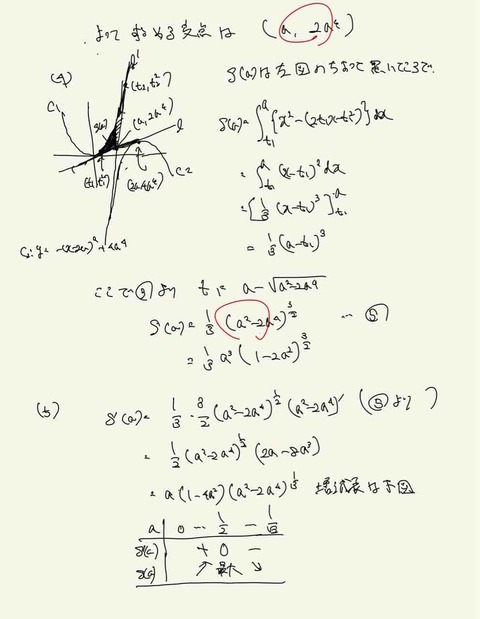 よって求める交点は (a, 2a⁴)
(4)
C₁
l'
(t₂, t₂²)
S(a)
(a, 2a⁴)
l
(t₁, t₁²)
(2a, 4a⁴)
C₂
C₂: y = -(x-2a)² + 4a⁴
S(a)は左図の
S(a) = ∫_{t₁}^{a} {x² - (2t₁x - t₁²)} dx
= ∫_{t₁}^{a} (x-t₁)² dx
= [1/3 (x-t₁)³]_{t₁}^{a}
= 1/3 (a-t₁)³
ここで②より t₁ = a - √(a²-2a⁴)
S(a) = 1/3 (a²-2a⁴)^{3/2} … ⑤
= 1/3 a³ (1-2a²)^{3/2}
(5) S'(a) = 1/3 · 3/2 (a²-2a⁴)^{1/2} (a²-2a⁴)' (⑤より)
= 1/2 (a²-2a⁴)^{1/2} (2a-8a³)
= a(1-4a²)(a²-2a⁴)^{1/2} 増減表は下図
a | 0 … 1/2 … 1/√2
S'(a) | + 0 -
S(a) | ↗ 最大 ↘